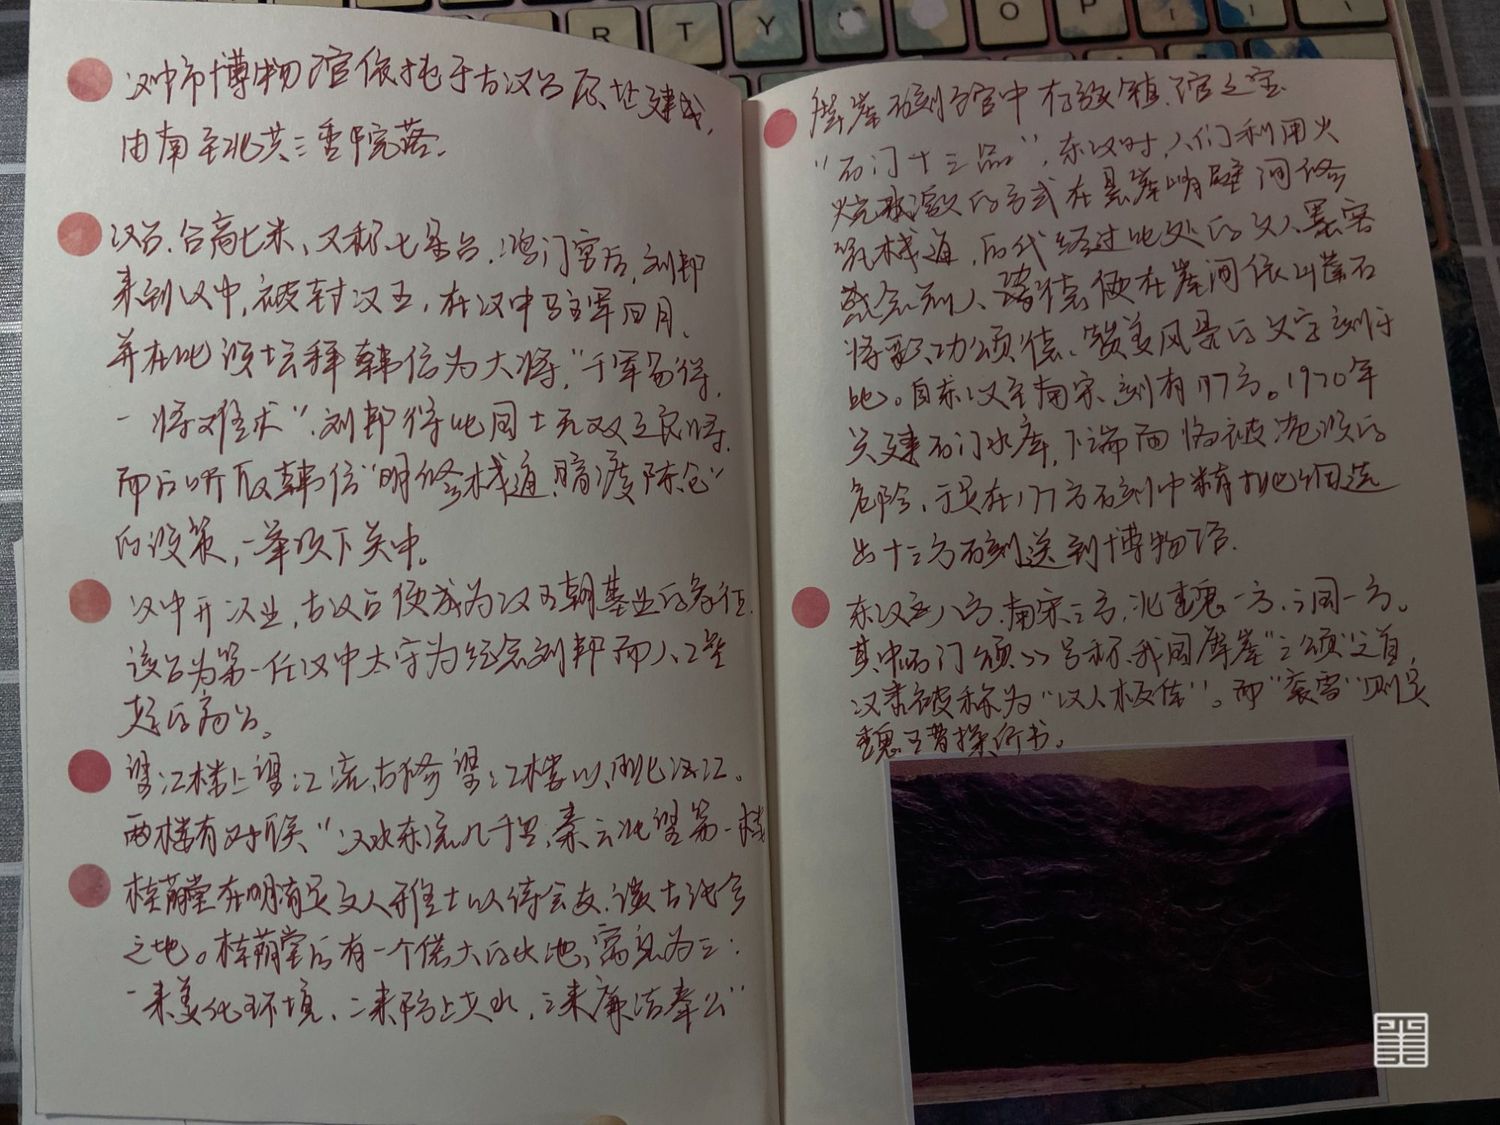 R T Y O P
汉中市博物馆依托于古汉台原址建成，
由南至北共三重院落。
汉台，台高七米，又称七星台，鸿门宴后，刘邦
来到汉中，被封汉王，在汉中驻军四月，
并在此设坛拜韩信为大将，“千军易得，
一将难求”，刘邦得此国士无双之良将，
而后听取韩信“明修栈道，暗渡陈仓”
的政策，一举攻下关中。
汉中开汉业，古汉台便成为汉王朝基业的象征，
该台为第一任汉中太守为纪念刘邦而人工垒
起的高台。
望江楼上望江流，古修望江楼以，汉江。
两楼有对联“汉水东流几千里，秦云北望第一楼
桂荫堂在明清是文人雅士以待会友，谈古论今
之地。桂荫堂后有一个偌大的水池，寓意为三：
一来美化环境，二来防止火，三来廉洁奉公”
摩崖石刻馆中存放镇馆之宝
“石门十三品”，东汉时，人们利用火
烧水激的方式在悬崖峭壁间修
筑栈道，后代经过此处的文人墨客
感念前人，便在崖间依山凿石
将歌功颂德、赞美风景的文字刻于
此。自东汉至南宋，刻有177方。1970年
兴建石门水库，下端面临被淹没的
危险，于是在177方石刻中精挑细选
出十三方石刻送到博物馆。
东汉八方，南宋三方，北魏一方，三国一方。
其中石门颂号称我国摩崖“三颂”之首，
汉隶被称为“汉人极作”。而“衮雪”则是
魏王曹操所书。